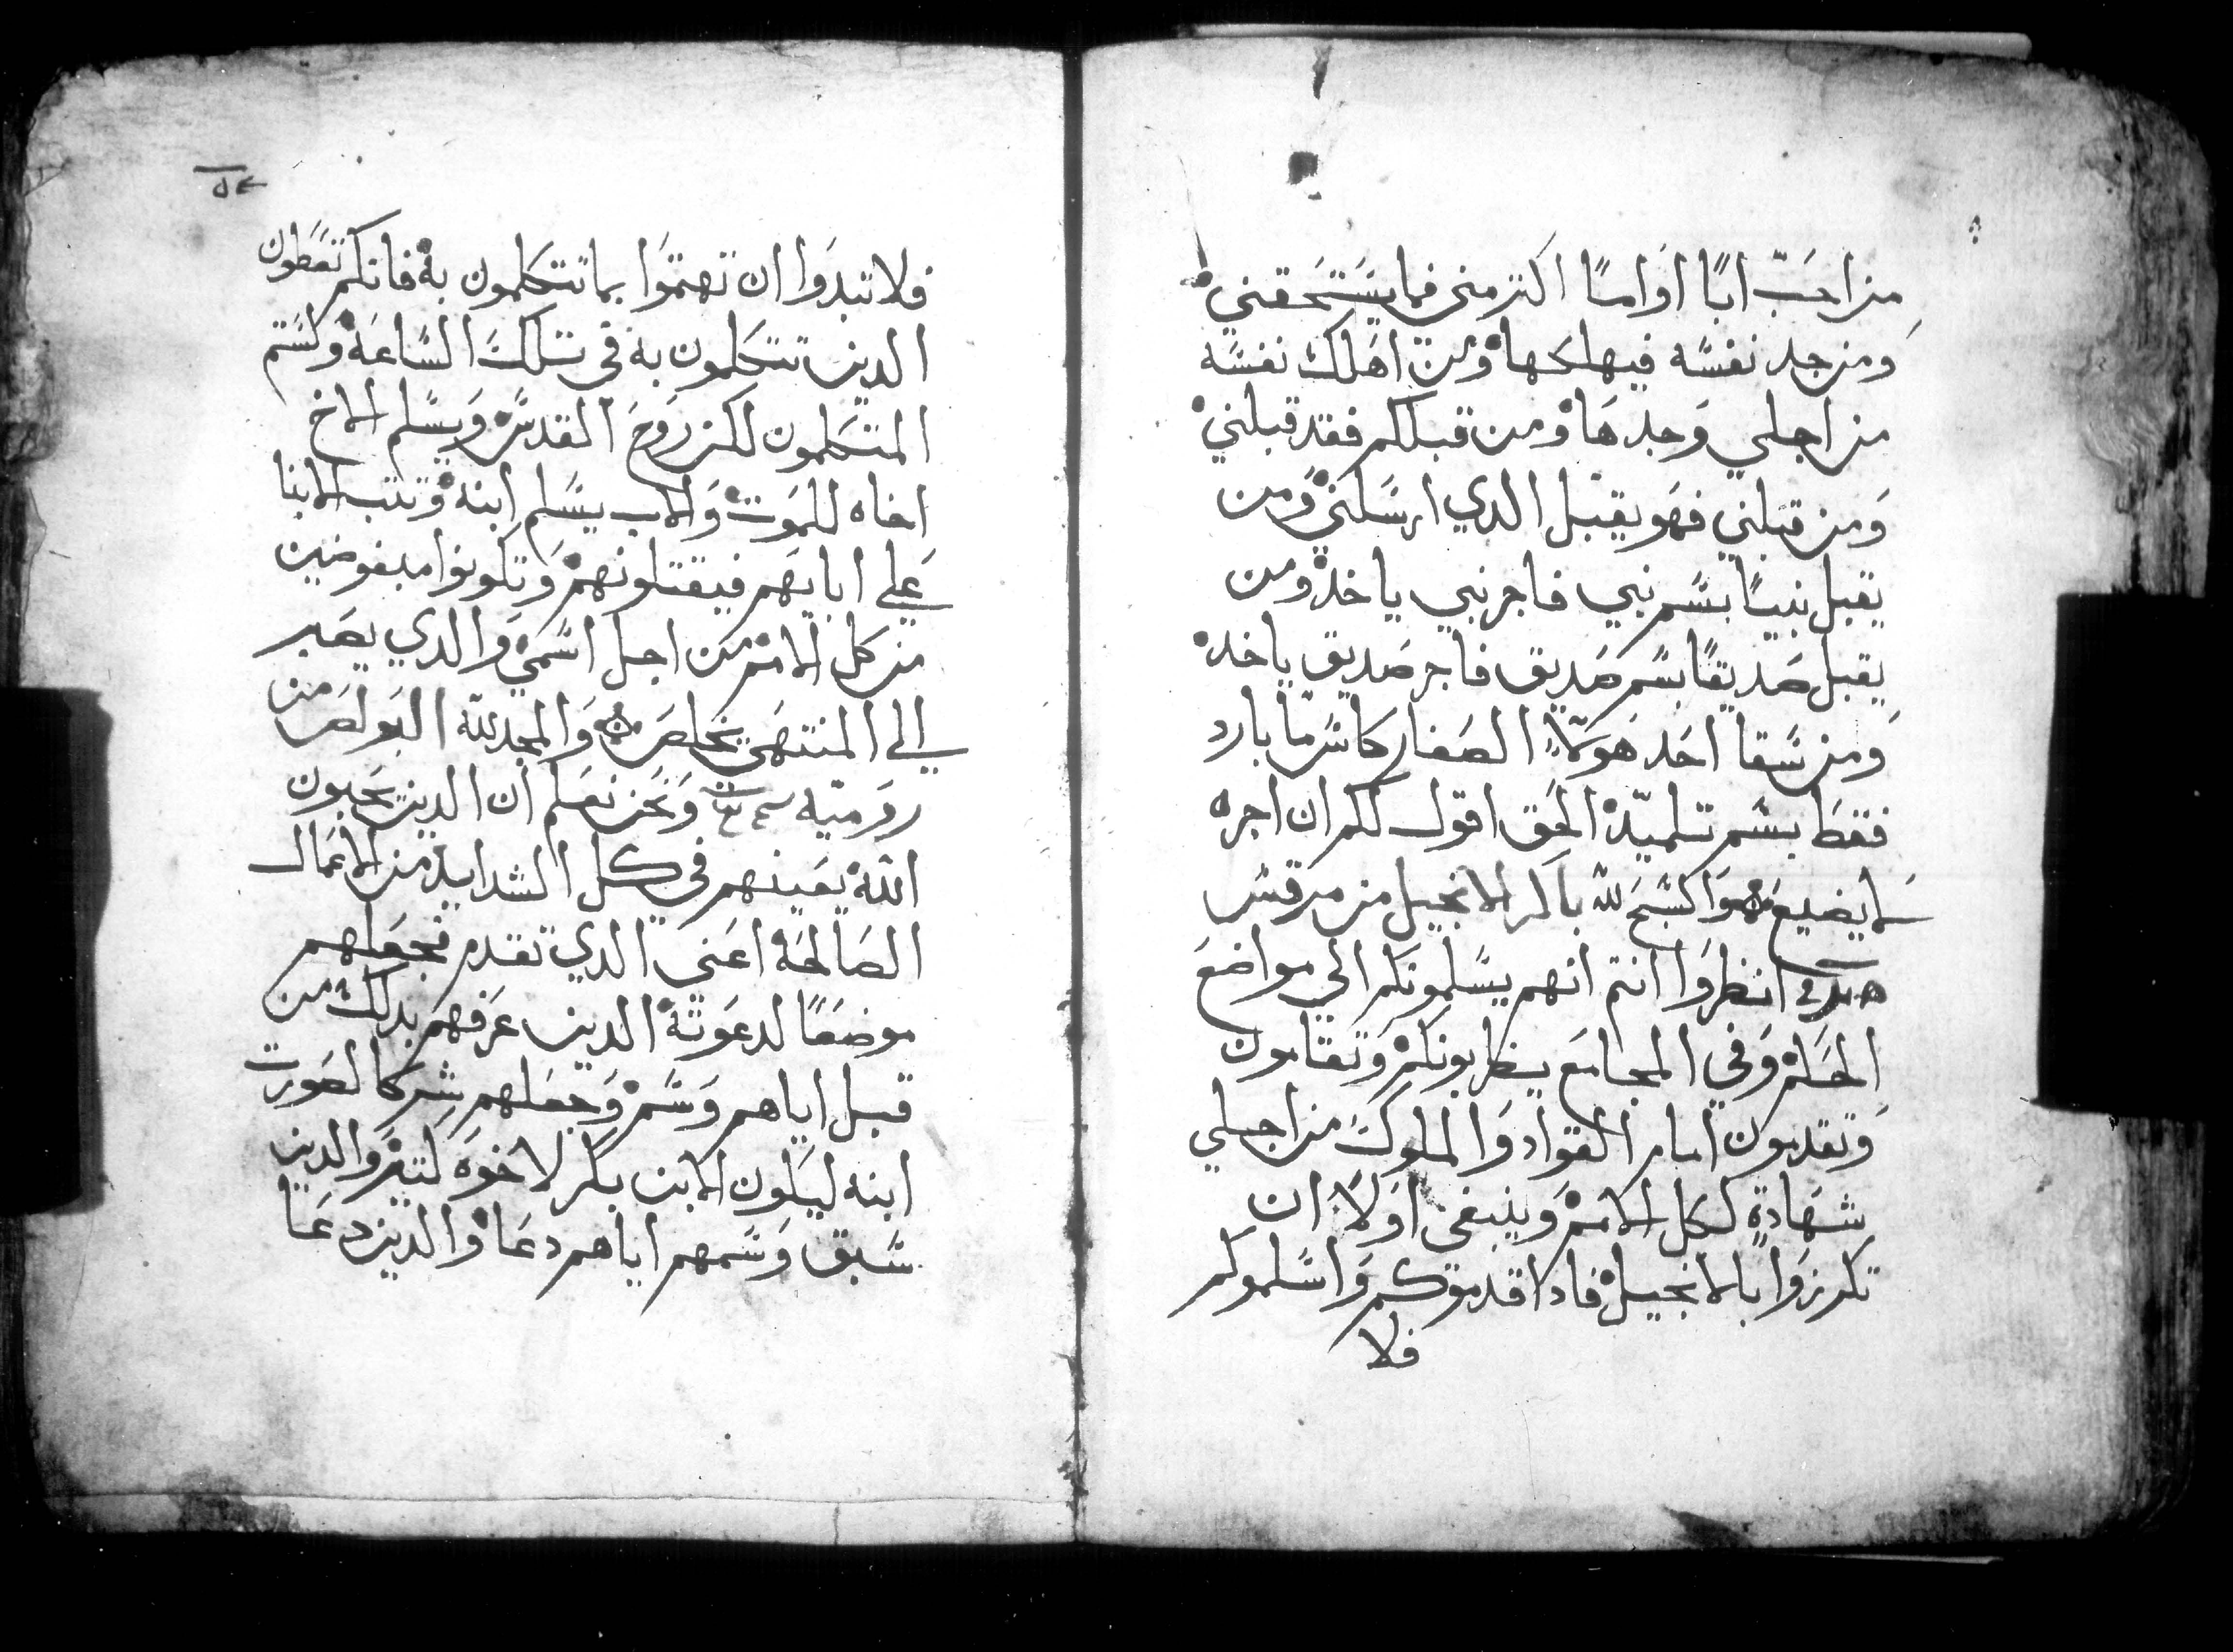 من احَبّ ابًا اوَ امًا اكتر مني فما يستَحقني
وَمن جد نفسَه فيهلكها وَمن اهَلك نفسَه
من اجلي وَجدهَا وَمن قبلكم فقد قبلني
وَمن قبلني فهَو يقبل الدي ارسَلني وَمن
يقبل نبيًا بسَم نبي فاجر نبي ياخد وَمن
يقبل صَديقًا بسَم صَديق فاجر صَديق ياخد
وَمن سَقا احَد هَولاء الصَغار كاسَ ما بارد
فقطَ بسَم تلميد الحَق اقول لكم ان اجره
لا يضيع وَالسَبح لله بالمر الانجيل من مرقسَ
انظروَا انتم انهم يسَلمونكم الي مواضعَ
الحَكم وَفي المجامعَ يضربونكم وَتقامون
وَتقدمون امام القواد وَالملوك من اجلي
شهَادة لكل الامم وَينبغي اوَلا ان
تكرزوَا بالانجيل فادا قدموَكم وَاسَلموكم
فلا
فلا تبدوَا ان تهتموَا بما تتكلمون به فانكم تعطون
الدين تتكلمون به في تلك السَاعَة وَلستم
المتكلمون لكن روَح القدسَ وَيسَلم الاخ
اخاه للموَت وَالاب يسَلم ابنه وَتتب الابنا
عَلي ابايهَم فيقتلونهم وَتكونوا مبغوضين
من كل الامم من اجل اسَمي وَالدي يصَبر
الي المنتهَى يخلصَ وَالمجد لله البوَلصَ من
روَميه وَنحَن نعَلم ان الدين يحَبون
الله يعَينهم في كل الشدايد من الاعَمال
الصَالحَة اعَني الدي تقدم فجعَلهم
موضعًا لدعوَته الدين عرَفهم بدلك من
قبل اياهم وَسَم وَجعَلهم شركا لصَورت
ابنه ليكَون الابن بكَر لاخوَه كتير وَالدين
سَبق وَسَمهم اياهم دعَا وَالدين دعَا